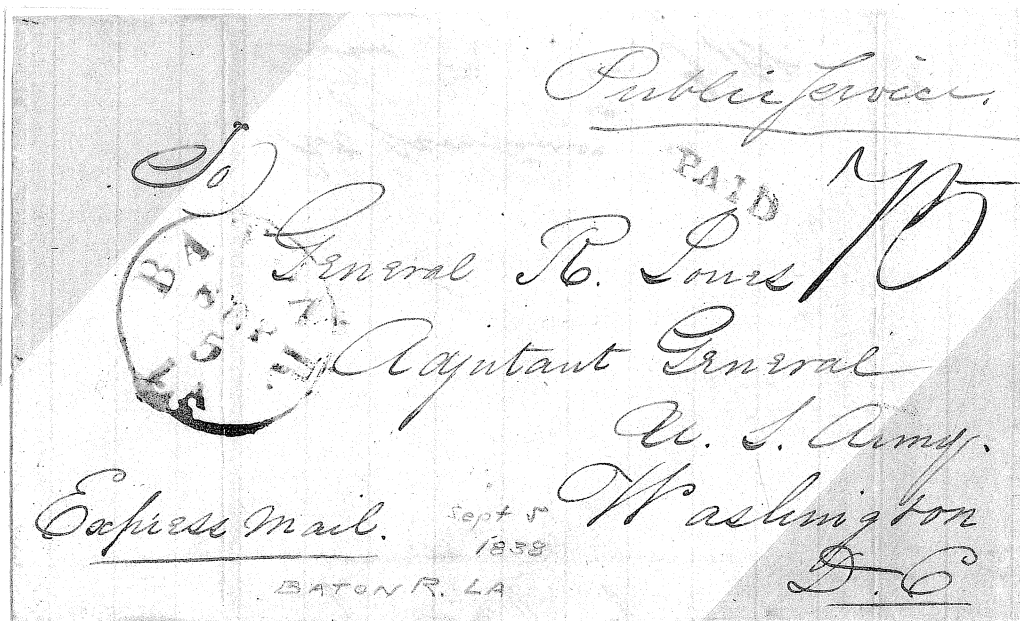 Public Service.
PAID
75
To
General R. Jones
Adjutant General
U. S. Army.
Washington
D. C
Express Mail.
BA
SEP
5
Sept 5
1838
BATON R. LA